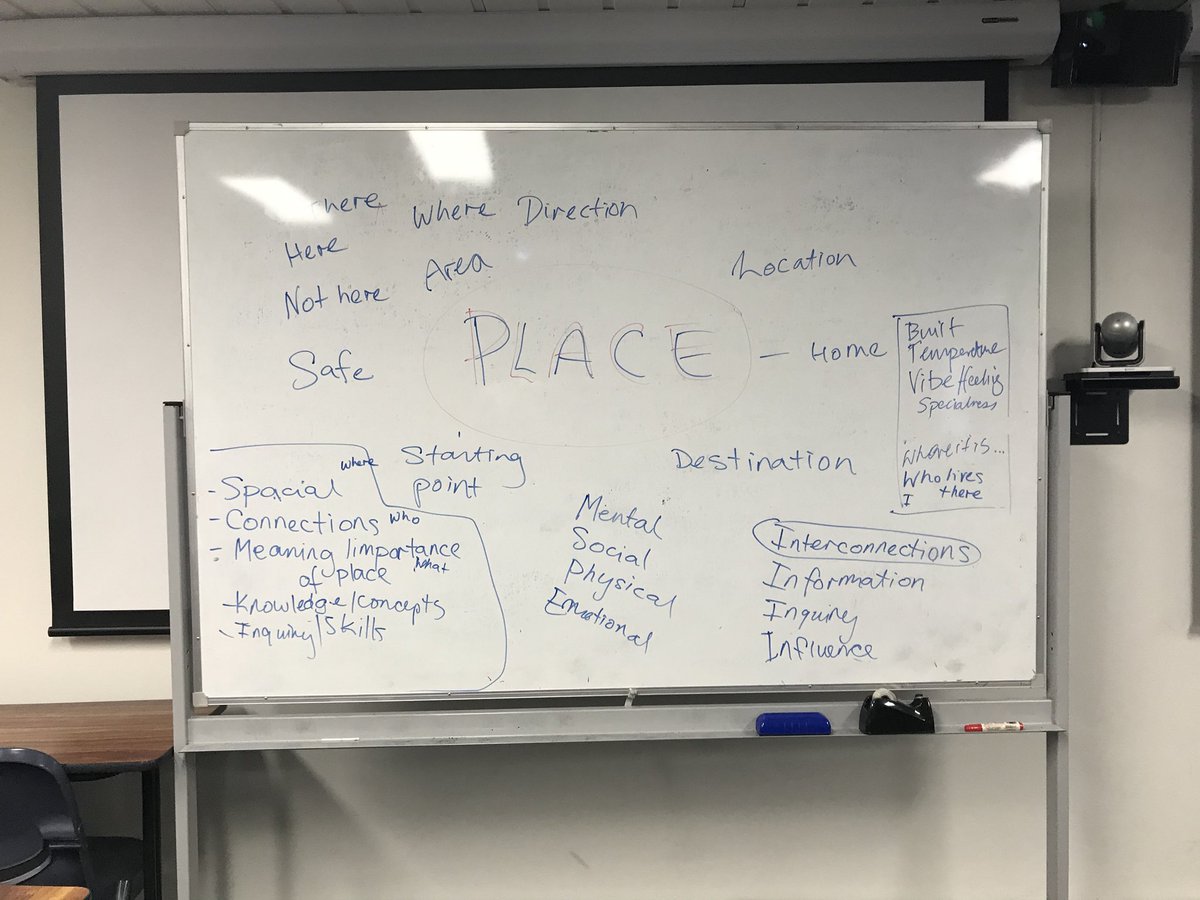 here Where Direction
Here Area
Location
Not here
PLACE - Home
Safe
Built
Temperature
Vibe/feeling
Specialness
Where it is...
Who lives
I there
Starting
point
Destination
where
- Spacial
- Connections who
- Meaning/importance
of place what
- Knowledge/concepts
- Inquiry/Skills
Mental
Social
Physical
Emotional
Interconnections
Information
Inquiry
Influence